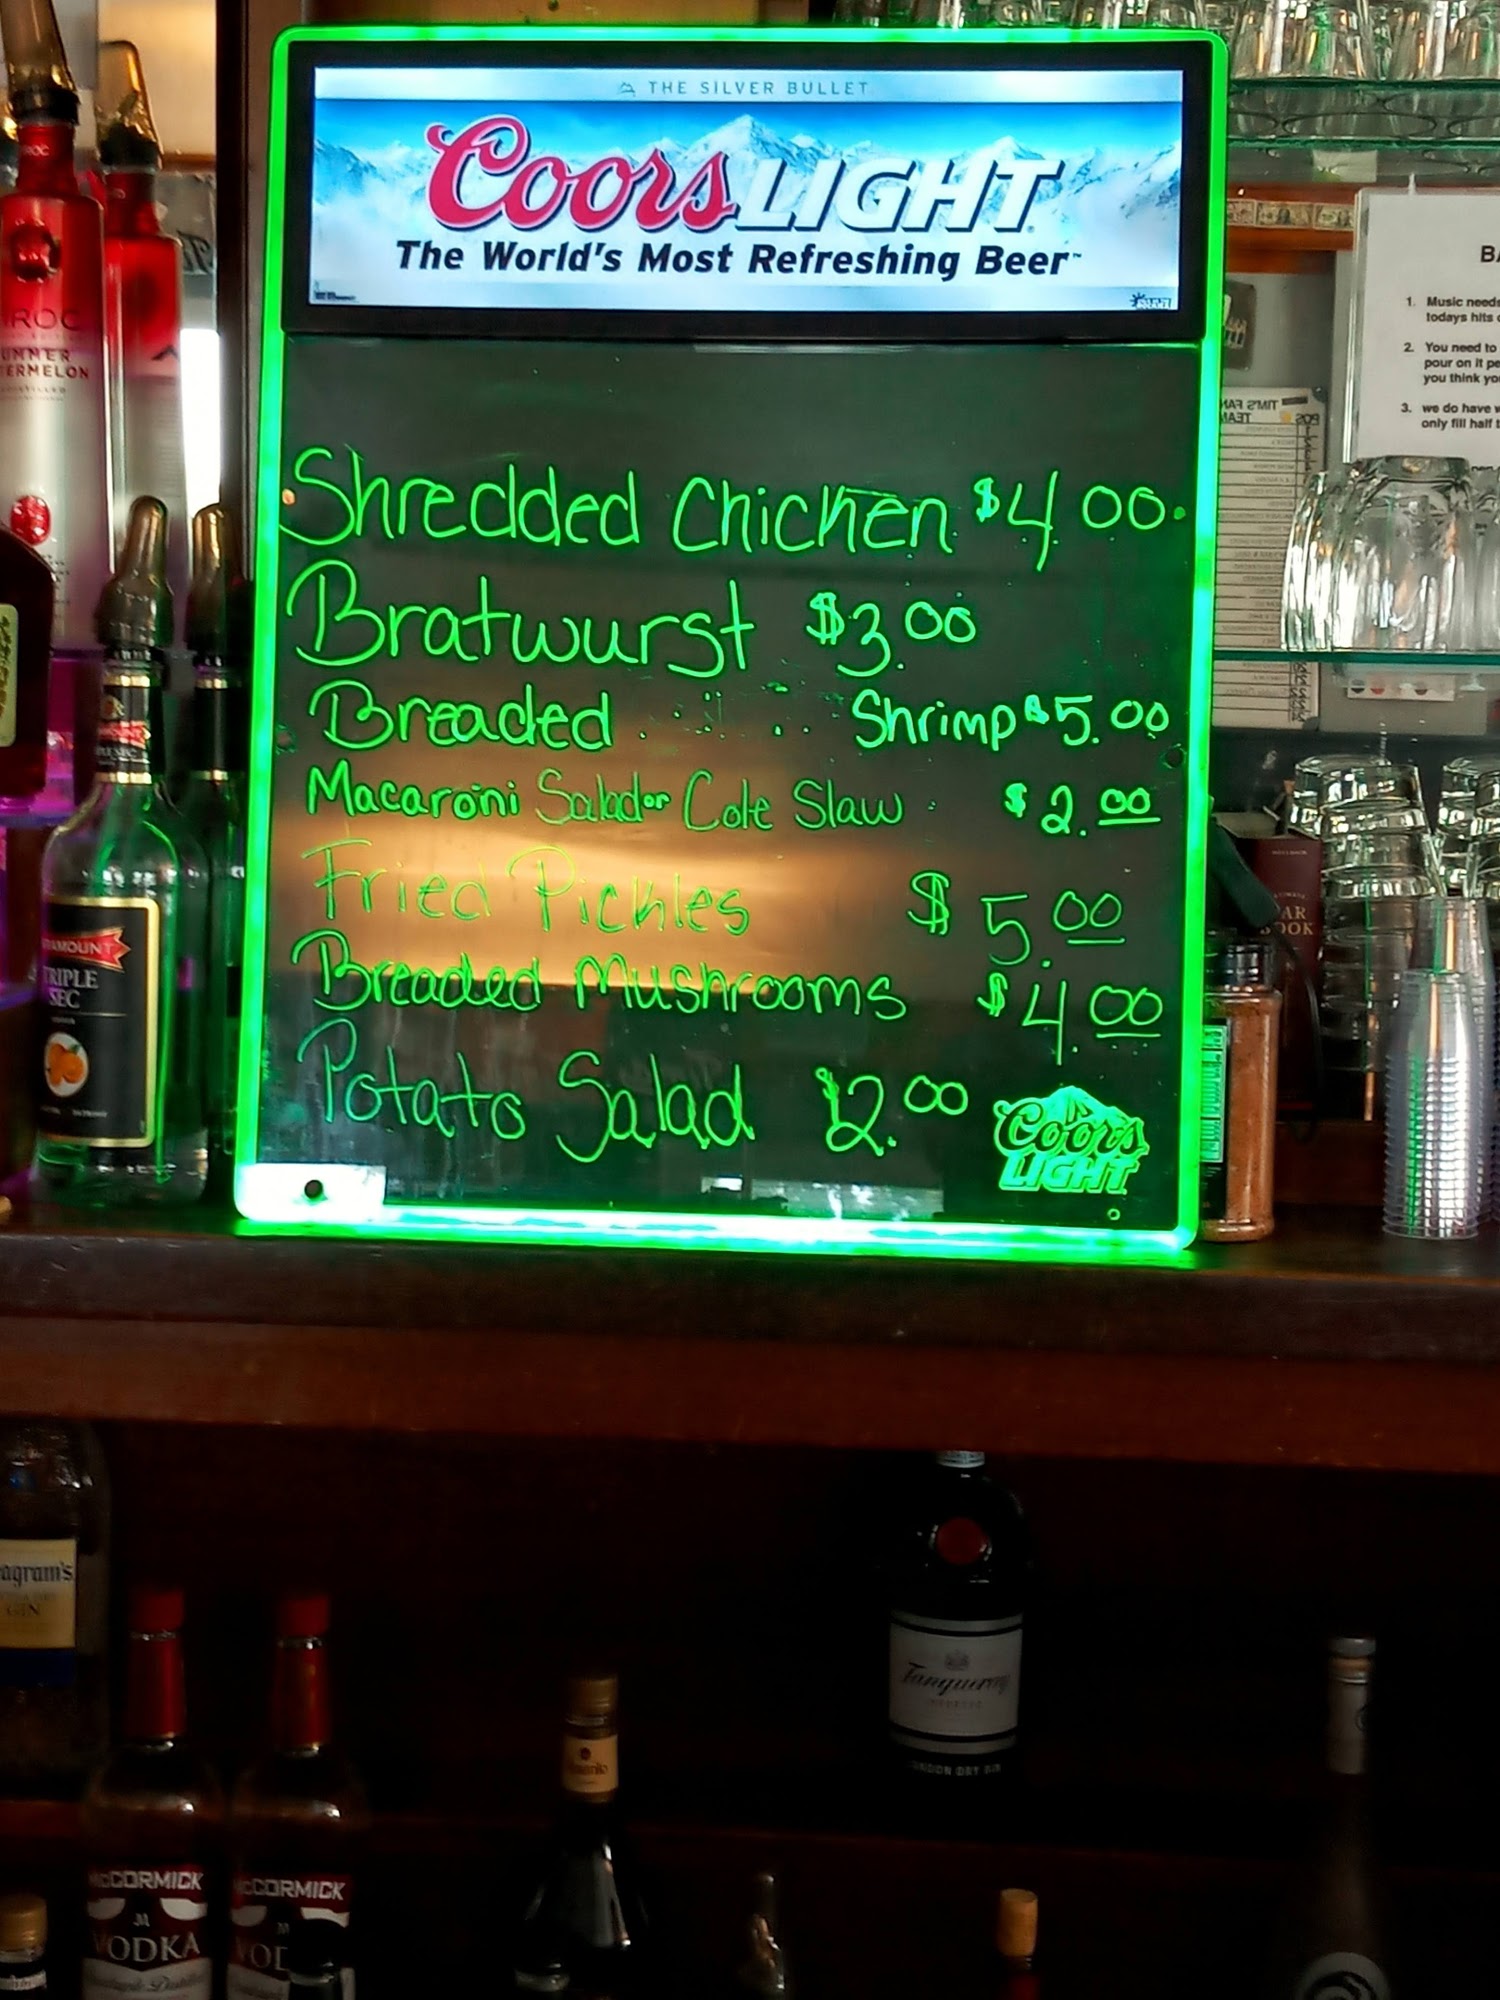 THE SILVER BULLET
Coors LIGHT
The World's Most Refreshing Beer™
Shredded Chicken $4.00
Bratwurst $3.00
Breaded Shrimp $5.00
Macaroni Salad or Cole Slaw $2.00
Fried Pickles $5.00
Breaded Mushrooms $4.00
Potato Salad $2.00
Coors
LIGHT
ROC
TRIPLE
SEC
1. Music needs
todays hits
2. You need to
pour on it
you think
3. we do have
only fill half
TIM'S
TEAM
POS
BOOK
agram's
GIN
Tanqueray
LONDON DRY GIN
McCORMICK
VODKA
McCORMICK
VOD